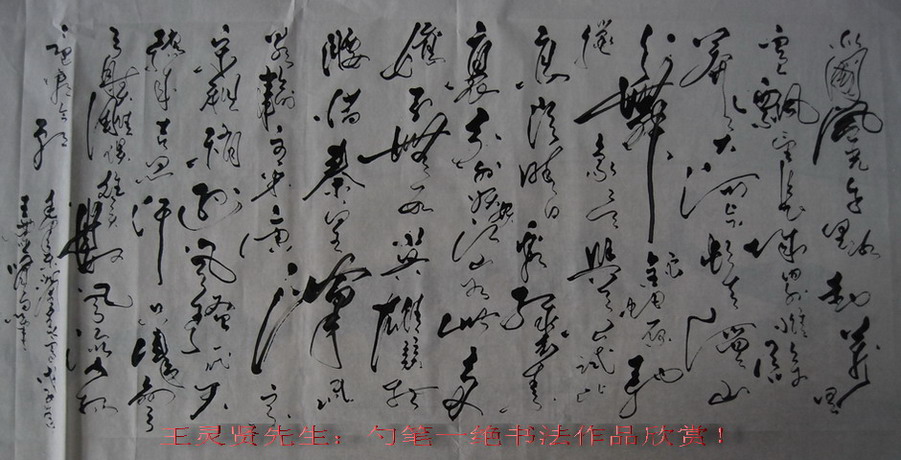 北国风光千里冰封万里
雪飘望长城内外惟余
莽莽大河上下顿失滔滔山
舞银蛇原驰
蜡象欲与天公试比
高须晴日看红装素
裹分外妖娆江山如此多
娇引无数英雄竞折
腰惜秦皇汉武
略输文采唐宗
宋祖稍逊风骚一代天
骄成吉思汗只识弯
弓射大雕俱往矣数风流人物
还看今朝
王灵贤先生：勺笔一绝书法作品欣赏！